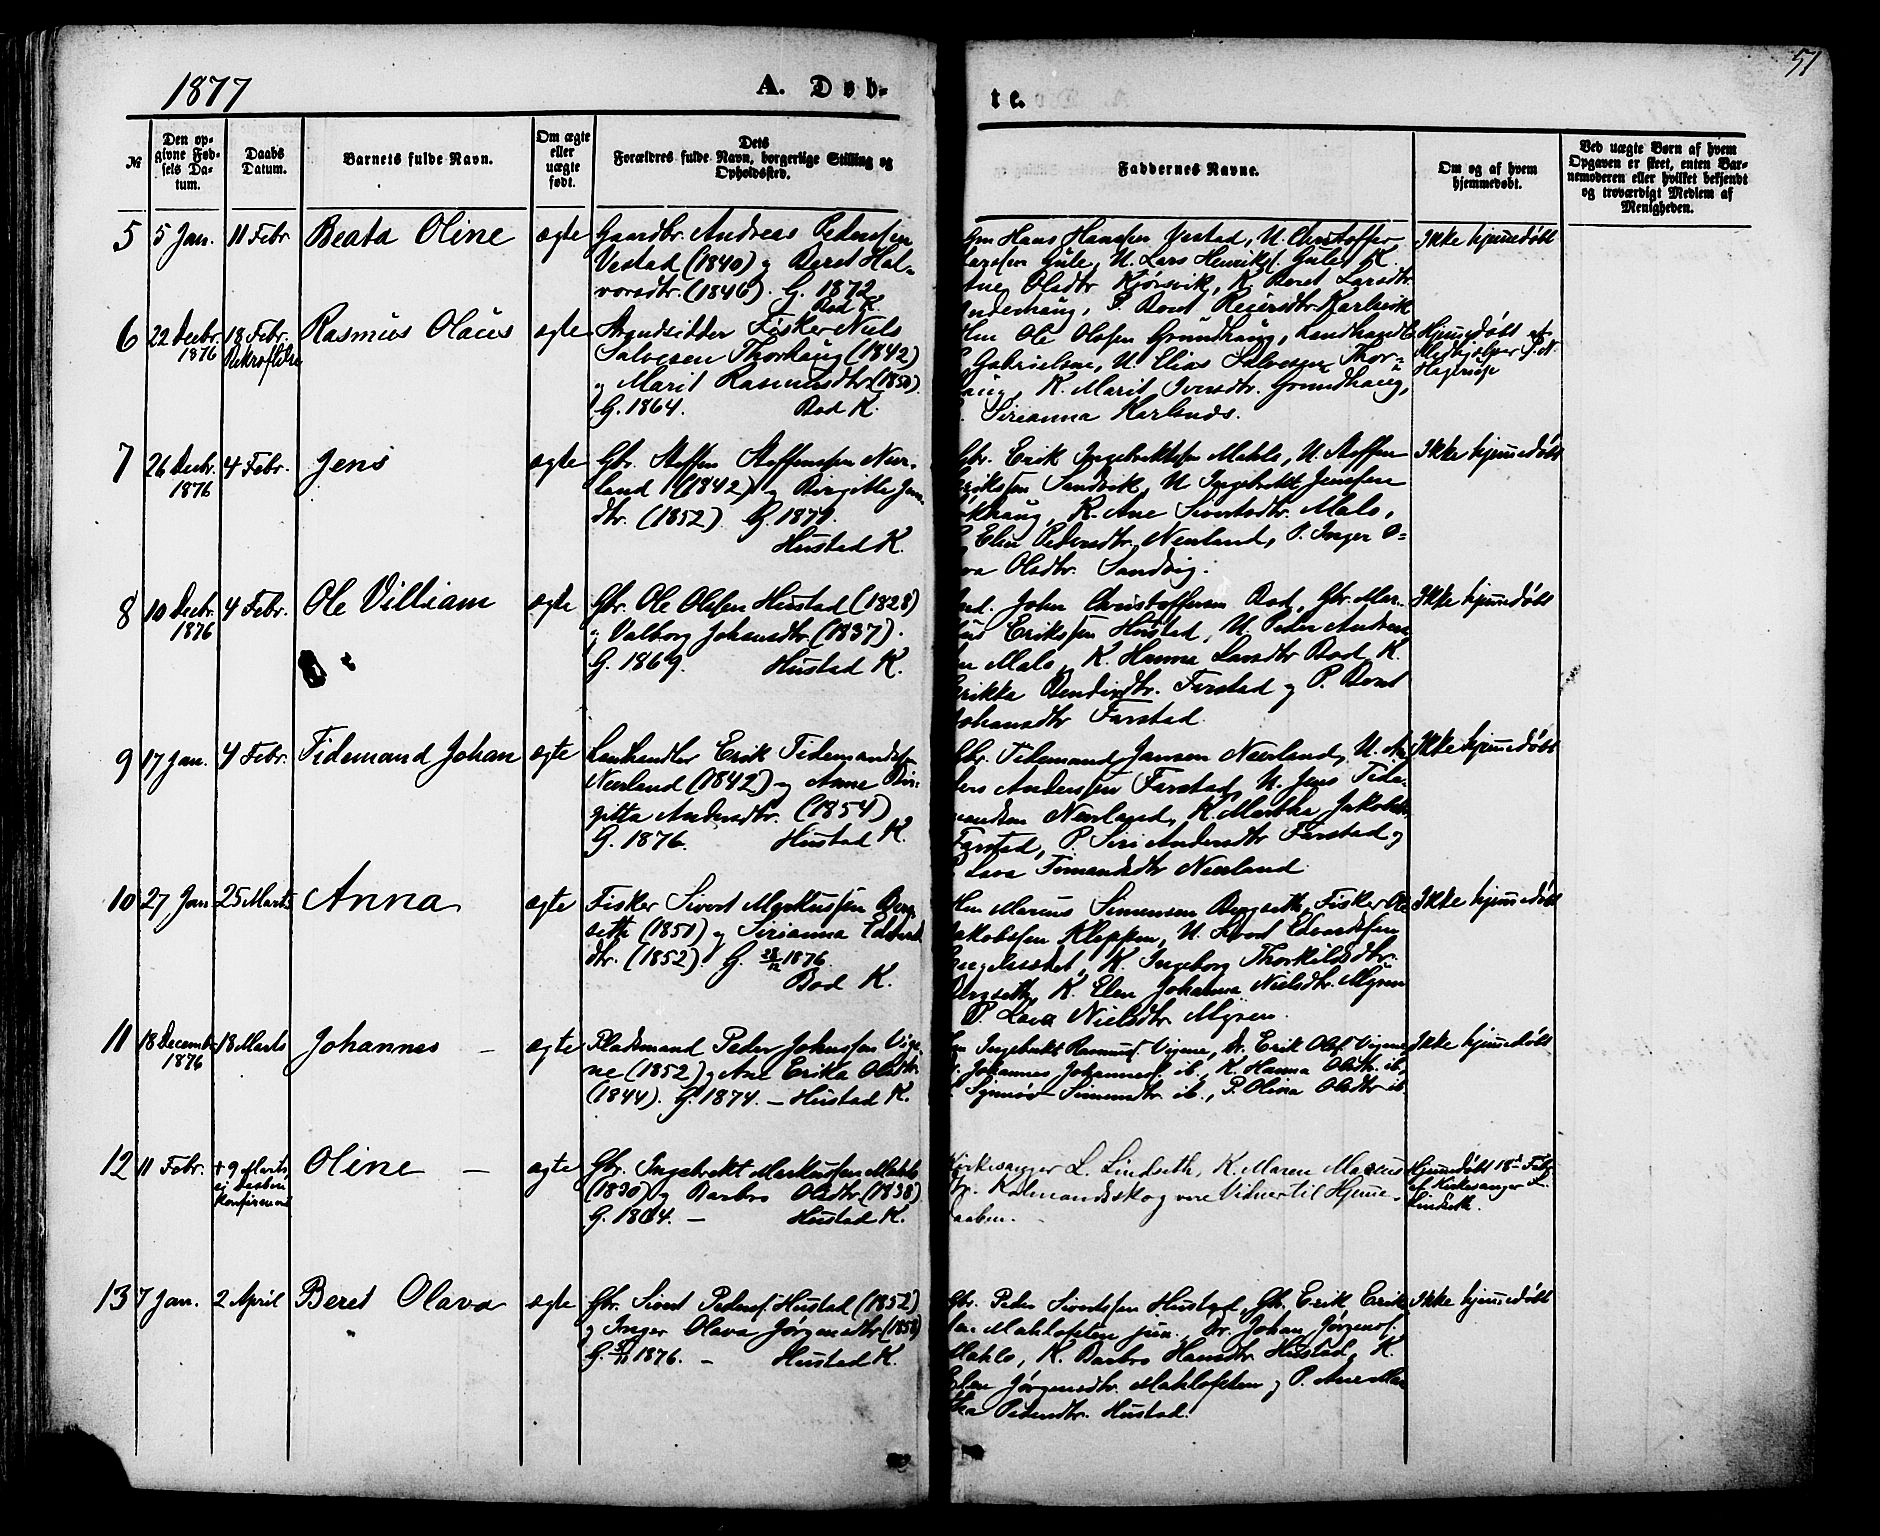 1877
A. Døb-
te.
51
№
Den op-
givne Fød-
sels Da-
tum.
Daabs
Datum.
Barnets fulde Navn.
Om ægte
eller
uægte
født.
Dets
Forældres fulde Navn, borgerlige Stilling og
Opholdssted.
Faddernes Navne.
Om og af hvem
hjemmedøbt.
Ved uægte Børn af hvem
Opgaven er skeet, enten Bar-
nemoderen eller hvilket bekjendt
og troværdigt Medlem af
Menigheden.
5
5 Jan.
11 Febr
Beata Oline
ægte
Gaardbr. Andreas Pederssen
Vestad (1840) og Beret Hal-
vorsdtr. (1846). G. 1872
Bod K.
Hans Hanssen Vestad, U. Christoffer
Gule, U. Lars Henriks. Gule, K.
Olsdtr Kjørsvik, K. Beret Larsdtr
P. Beret Karlsvik
Ikke hjemmedøbt
6
22 Decbr.
1876
18 Febr.
Rasmus Olaus
ægte
Strandsidder Fisker Niels
Salvesen Thorhaug (1842)
og Marit Rasmusdtr. (1850)
G. 1864. Bod K.
Ole Olssen Grundhaug, Landhandl.
Gabrielsen, U. Elias Salvesen Thor-
haug, K. Marit Iversdtr. Grundhaug,
Sirianna Karlsnds.
Hjemmedøbt af
Medhjelper P. N.
Hagerup
7
26 Decbr.
1876
4 Febr.
Jens
ægte
Gbr. Steffen Steffenssen Neer-
land (1842) og Birgitte Jens-
dtr. (1852) G. 1874.
Hustad K.
Gbr. Erik Ingebrektssen Mahle, U. Steffen
Erikssen Sandvik, U Ingebrekt Jenssen
haug, K. Ane Sivertsdtr. Male,
Elen Pedersdtr. Neerland, P. Inger O-
Olsdtr. Sandvig.
Ikke hjemmedøbt
8
10 Decbr.
1876
4 Febr.
Ole Villiam
ægte
Gbr. Ole Olssen Hustad (1828)
og Valborg Johansdtr. (1837).
G. 1869. Hustad K.
John Christoffersen Bod, Gbr. Mar-
Erikssen Hustad, U. Peder Anders-
sen Male, K. Hanna Larsdtr Bod, K.
Erikka Bendixdtr. Farstad og P. Beret
Johansdtr Farstad.
Ikke hjemmedøbt
9
17 Jan.
4 Febr.
Tidemand Johan
ægte
Landhandler Erik Tidemandss.
Neerland (1842) og Anne Bir-
gitta Andersdtr. (1854)
G. 1876. Hustad K.
Gbr. Tidemand Jansen Neerland, U. An-
ders Anderssen Farstad, U. Jens Tide-
mandsen Neerland, K. Martha Jakobsdtr
Farstad, P. Siri Andersdtr Farstad og
Lava Timandsdtr Neerland
Ikke hjemmedøbt
10
27 Jan
25 Marts
Anna
ægte
Fisker Sivert Markussen Berg-
seth (1851) og Sirianna Edvards-
dtr. (1852). G. 28/12 1876
Bod K.
Marcus Simensen Bergseth, Fisker Ole
Jakobssen Kleppen, U. Sivert Edvardssen
K. Ingeborg Thorkildsdtr.
Bergseth, K. Elen Johanna Nielsdtr. Myren
P. Lava Nielsdtr. Myren.
Ikke hjemmedøbt
11
18 Decemb.
1876
18 Marts
Johannes
ægte
Pladsmand Peder Johnssen Vige-
ne (1852) og Ane Erika Olsdtr.
(1844). G. 1874. — Hustad K.
Ingebrekt Rasmuss. Vigene, Dr. Erik Olss. Vigene
Johannes Johanness. ib., K. Hanna Olsdtr. ib.
Synnøv Simensdtr. ib., P. Olina Olsdtr ib.
Ikke hjemmedøbt
12
11 Febr.
+ 9 Marts
ej Daaben
konfirmeret
Oline —
ægte
Gbr. Ingebrekt Markussen Mahle
(1830) og Barbro Olsdtr. (1838)
G. 1864. — Hustad K.
Kirkesanger L. Lindseth, K. Maren Marcus-
dtr. Kalmandsskog vare Vidner til Hjemme-
daaben.
Hjemmedøbt 18 Febr
af Kirkesanger L.
Lindseth.
13
7 Jan.
2 April
Beret Olava
ægte
Gbr. Sivert Peders. Hustad (1852)
og Inger Olava Jørgensdtr. (1858)
G. 1876. — Hustad K.
Gbr. Peder Sivertssen Hustad, Gb. Erik Erik-
sen Mahlefeten jun., Dr. Johan Jørgens.
Mahle, K. Barbro Hansdtr. Hustad, K.
Elen Jørgensdtr. Mahlefeten og P. Ane Mar-
tha Pedersdtr. Hustad.
Ikke hjemmedøbt